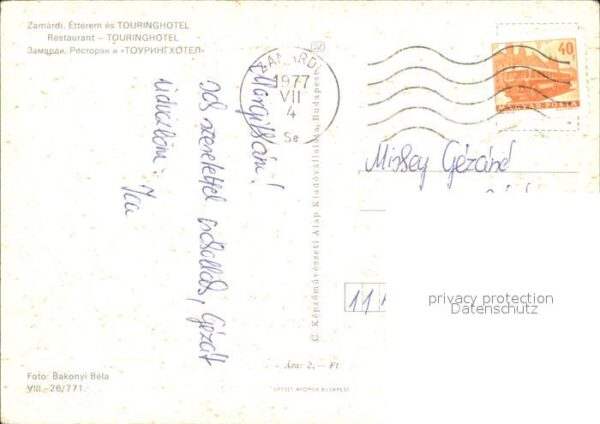 Zamárdi. Étterem és TOURINGHOTEL
Restaurant – TOURINGHOTEL
Замарди. Ресторан и «ТОУРИНГХОТЕЛ»
ZAMÁRDI
1977
VII
4
Se
40
MAGYAR POSTA
Margitkám!
Sok szeretettel
Géz
üdvözlöm: Ica
© Képzőművészeti Alap Kiadóvállalata, Budapest
Géz
11
privacy protection
Datenschutz
Ára: 2,– Ft
Foto: Bakonyi Béla
VIII.-26/771.
OFFSET NYOMDA BUDAPEST